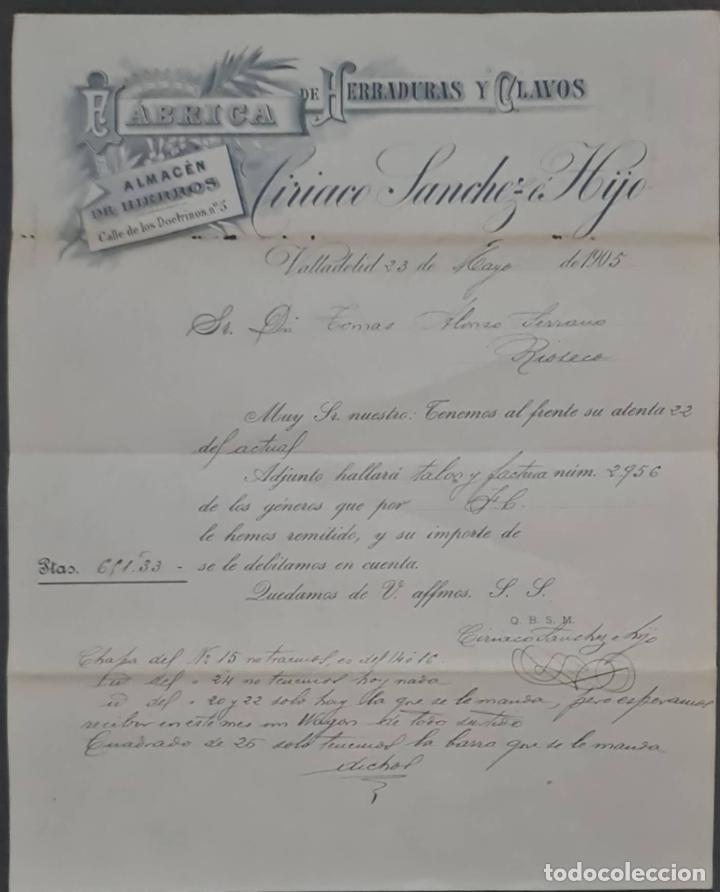 FÁBRICA DE HERRADURAS Y CLAVOS
ALMACÉN
DE HIERROS
Calle de los Doctrinos, nº 5
Ciriaco Sanchez é Hijo
Valladolid 23 de Mayo de 1905
Sr. Dn Tomas Alonso Serrano
Rioseco
Muy Sr. nuestro: Tenemos al frente su atenta 22
del actual
Adjunto hallará talon y factura núm. 2956
de los géneros que por F. C.
le hemos remitido, y su importe de
Ptas. 691.33 - se le debitamos en cuenta.
Quedamos de V. affmos. S. S.
Q. B. S. M.
Ciriaco Sanchez e hijo
Chapa del Nº 15 no tenemos, es del 14 ó 16
id del " 24 no tenemos hoy nada
id del " 20 y 22 solo hay la que se le manda, pero esperamos
recibir en este mes un Wagon de todo surtido
Cuadrado de 25 solo tenemos la barra que se le manda
dichos
todocoleccion
todocoleccion.net